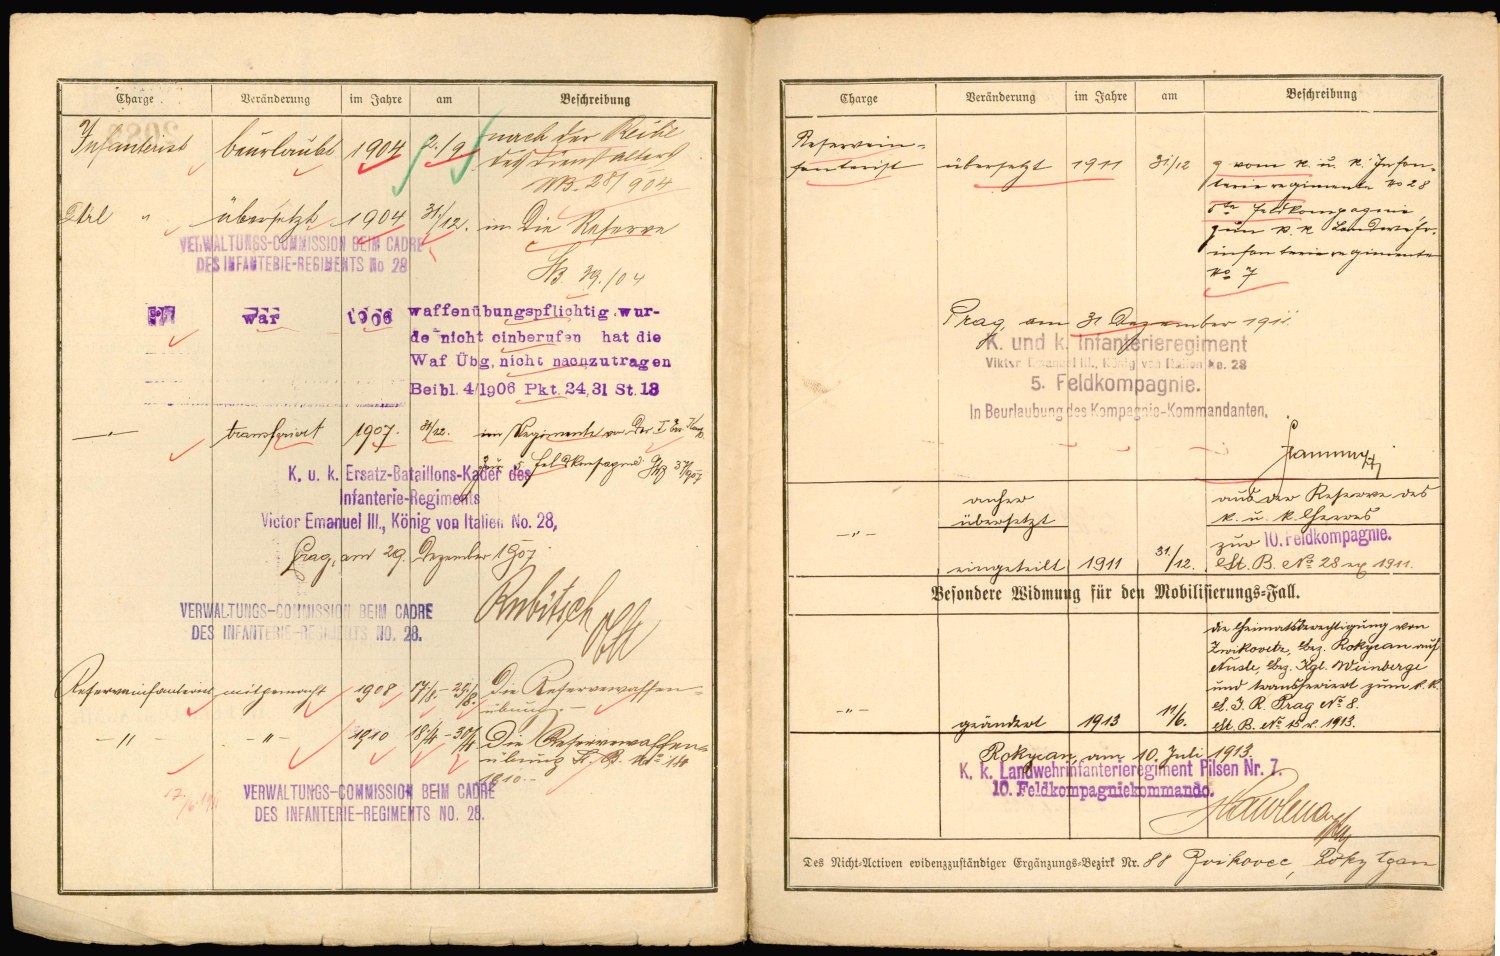 Charge Veränderung im Jahre am Beschreibung
Infanterist beurlaubt 1904 2./9 nach der Reihe
des Dienstalters
No. 28/904
Dtrl " übersetzt 1904 31./12. in die Reserve
VERWALTUNGS-COMMISSION BEIM CADRE
DES INFANTERIE-REGIMENTS No 28
StB 39./04
war 1906 waffenübungspflichtig wur-
de nicht einberufen hat die
Waf Übg, nicht nachzutragen
Beibl. 4/1906 Pkt. 24,31 St. 13
— " — transferirt 1907. 31/12. im Regimente von der
zur 5. Feldkompagnie StB 37/1907
K. u. k. Ersatz-Bataillons-Kader des
Infanterie-Regiments
Victor Emanuel III., König von Italien No. 28,
Prag, am 29. Dezember 1907
Rubitsch Oblt
VERWALTUNGS-COMMISSION BEIM CADRE
DES INFANTERIE-REGIMENTS NO. 28.
Reserveinfanterist mitgemacht 1908 17/8.–29/8. Die Reservewaffen-
übung.—
— " — — " — 1910 18/4–30/4 Die Reservewaffen-
übung St. B. No 14
1910.—
VERWALTUNGS-COMMISSION BEIM CADRE
DES INFANTERIE-REGIMENTS NO. 28.
Charge Veränderung im Jahre am Beschreibung
Reservein-
fanterist übersetzt 1911 31./12 vom k. u. k. Infan-
terieregimente No 28
5te Feldkompagnie
zum k. k. Landwehr-
infanterieregimente
No 7
Prag, am 31 Dezember 1911
K. und k. Infanterieregiment
Viktor Emanuel III., König von Italien No. 28
5. Feldkompagnie.
In Beurlaubung des Kompagnie-Kommandanten,
anher aus der Reserve des
übersetzt k. u. k. Heeres
— " — zur 10. Feldkompagnie.
eingeteilt 1911 31./12. St. B. No 28 ex 1911.
Besondere Widmung für den Mobilisierungs-Fall.
die Heimatsberechtigung von
Zwikovetz, Bez. Rokycan auf
Nusle, Bez. Kgl. Weinberge
und transferiert zum k. k.
L. I. R. Prag No 8.
— " — geändert 1913 11/6. St. B. No 15 v. 1913.
Rokycan, am 10. Juli 1913
K. k. Landwehrinfanterieregiment Pilsen Nr. 7.
10. Feldkompagniekommando.
Des Nicht-Activen evidenzzuständiger Ergänzungs-Bezirk Nr. 88 Zvikovec, Rokytzan